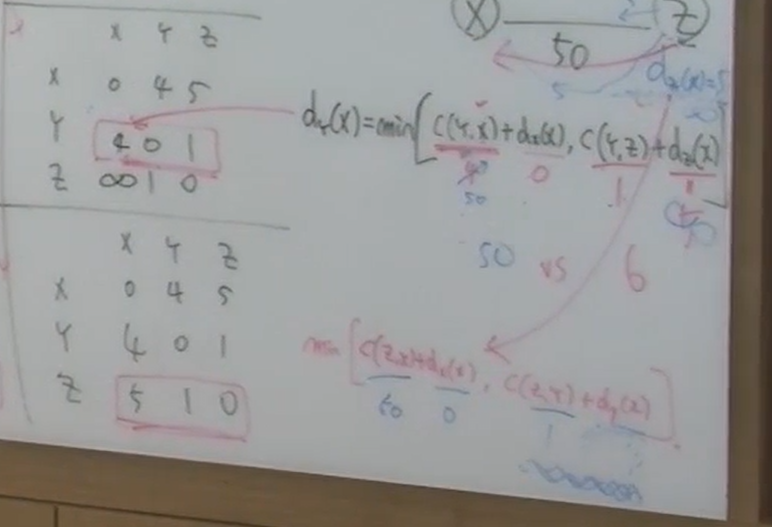 X Y Z
X 0 4 5
Y 4 0 1
Z ∞ 1 0
X Y Z
X 0 4 5
Y 4 0 1
Z 5 1 0
X Z
50
5
d_z(x)=5
d_Y(x)=min[C(Y,x)+d_x(x), C(Y,z)+d_z(x)]
50 0 1
50 vs 6
min[C(Z,x)+d_x(x), C(Z,Y)+d_y(x)].
50 0 1